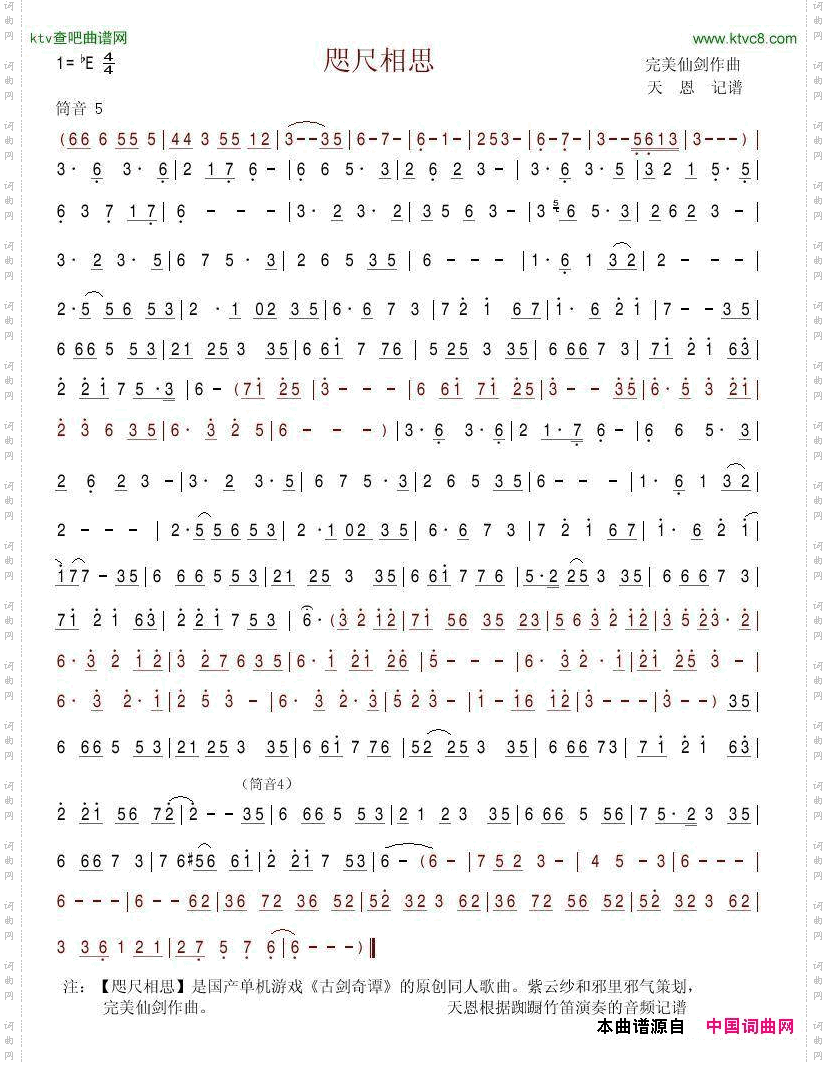 ktv查吧曲谱网
www.ktvc8.com
1= ♭E 4/4
咫尺相思
完美仙剑作曲
天 恩 记谱
筒音 5
(66 6 55 5|44 3 55 12|3--35|6-7-|6-1-|253-|6-7-|3--5613|3---)|
3· 6 3· 6|2 1 7 6 -|6 6 5· 3|2 6 2 3 -|3· 6 3· 5|3 2 1 5· 5|
6 3 7 1 7|6 - - -|3· 2 3· 2|3 5 6 3 -|3 5 6 5· 3|2 6 2 3 -|
3· 2 3· 5|6 7 5· 3|2 6 5 35|6 - - -|1· 6 1 32|2 - - -|
2·5 56 53|2 · 1 02 35|6· 6 7 3|72 1 67|1· 6 2 1|7 - - 35|
6 66 5 53|21 25 3 35|6 61 7 76|5 25 3 35|6 66 7 3|71 2 1 63|
2 2 1 7 5·3|6 - (71 25|3 - - -|6 61 71 25|3 - - 35|6· 5 3 21|
2 3 6 35|6· 3 2 5|6 - - -)|3· 6 3· 6|2 1·7 6 -|6 6 5· 3|
2 6 2 3 -|3· 2 3· 5|6 7 5· 3|2 6 5 35|6 - - -|1· 6 1 32|
2 - - -|2·5 5 6 53|2 ·1 02 35|6· 6 7 3|7 2 1 67|1· 6 2 1|
177 - 35|6 66 5 53|21 25 3 35|6 61 7 76|5·2 25 3 35|6 66 7 3|
71 2 1 63|2 2 1 7 53|6·(3 2 12|71 56 35 23|5 6 3 2 12|3 5 23· 2|
6· 3 2 12|3 2 7 6 35|6· 1 21 26|5 - - -|6· 3 2· 1|21 25 3 -|
6· 3 2· 1|2 5 3 -|6· 3 2· 3|5 2 3 -|1 - 16 12|3 - - -|3 - - ) 35|
6 66 5 53|21 25 3 35|6 61 7 76|52 25 3 35|6 66 73|71 2 1 63|
（筒音4）
2 21 56 72|2 - - 35|6 66 5 53|2 1 23 35|6 66 5 56|75· 2 3 35|
6 66 7 3|7 6 #56 61|2 21 7 53|6 - (6 -|7 52 3 -|4 5 - 3|6 - - -|
6 - - -|6 - - 62|36 72 36 52|52 32 3 62|36 72 56 52|52 32 3 -|
3 36 1 21|27 5 7 6|6 - - -)‖
注：【咫尺相思】是国产单机游戏《古剑奇谭》的原创同人歌曲。紫云纱和邪里邪气策划，
完美仙剑作曲。 天恩根据踟蹰竹笛演奏的音频记谱
本曲谱源自 中国词曲网